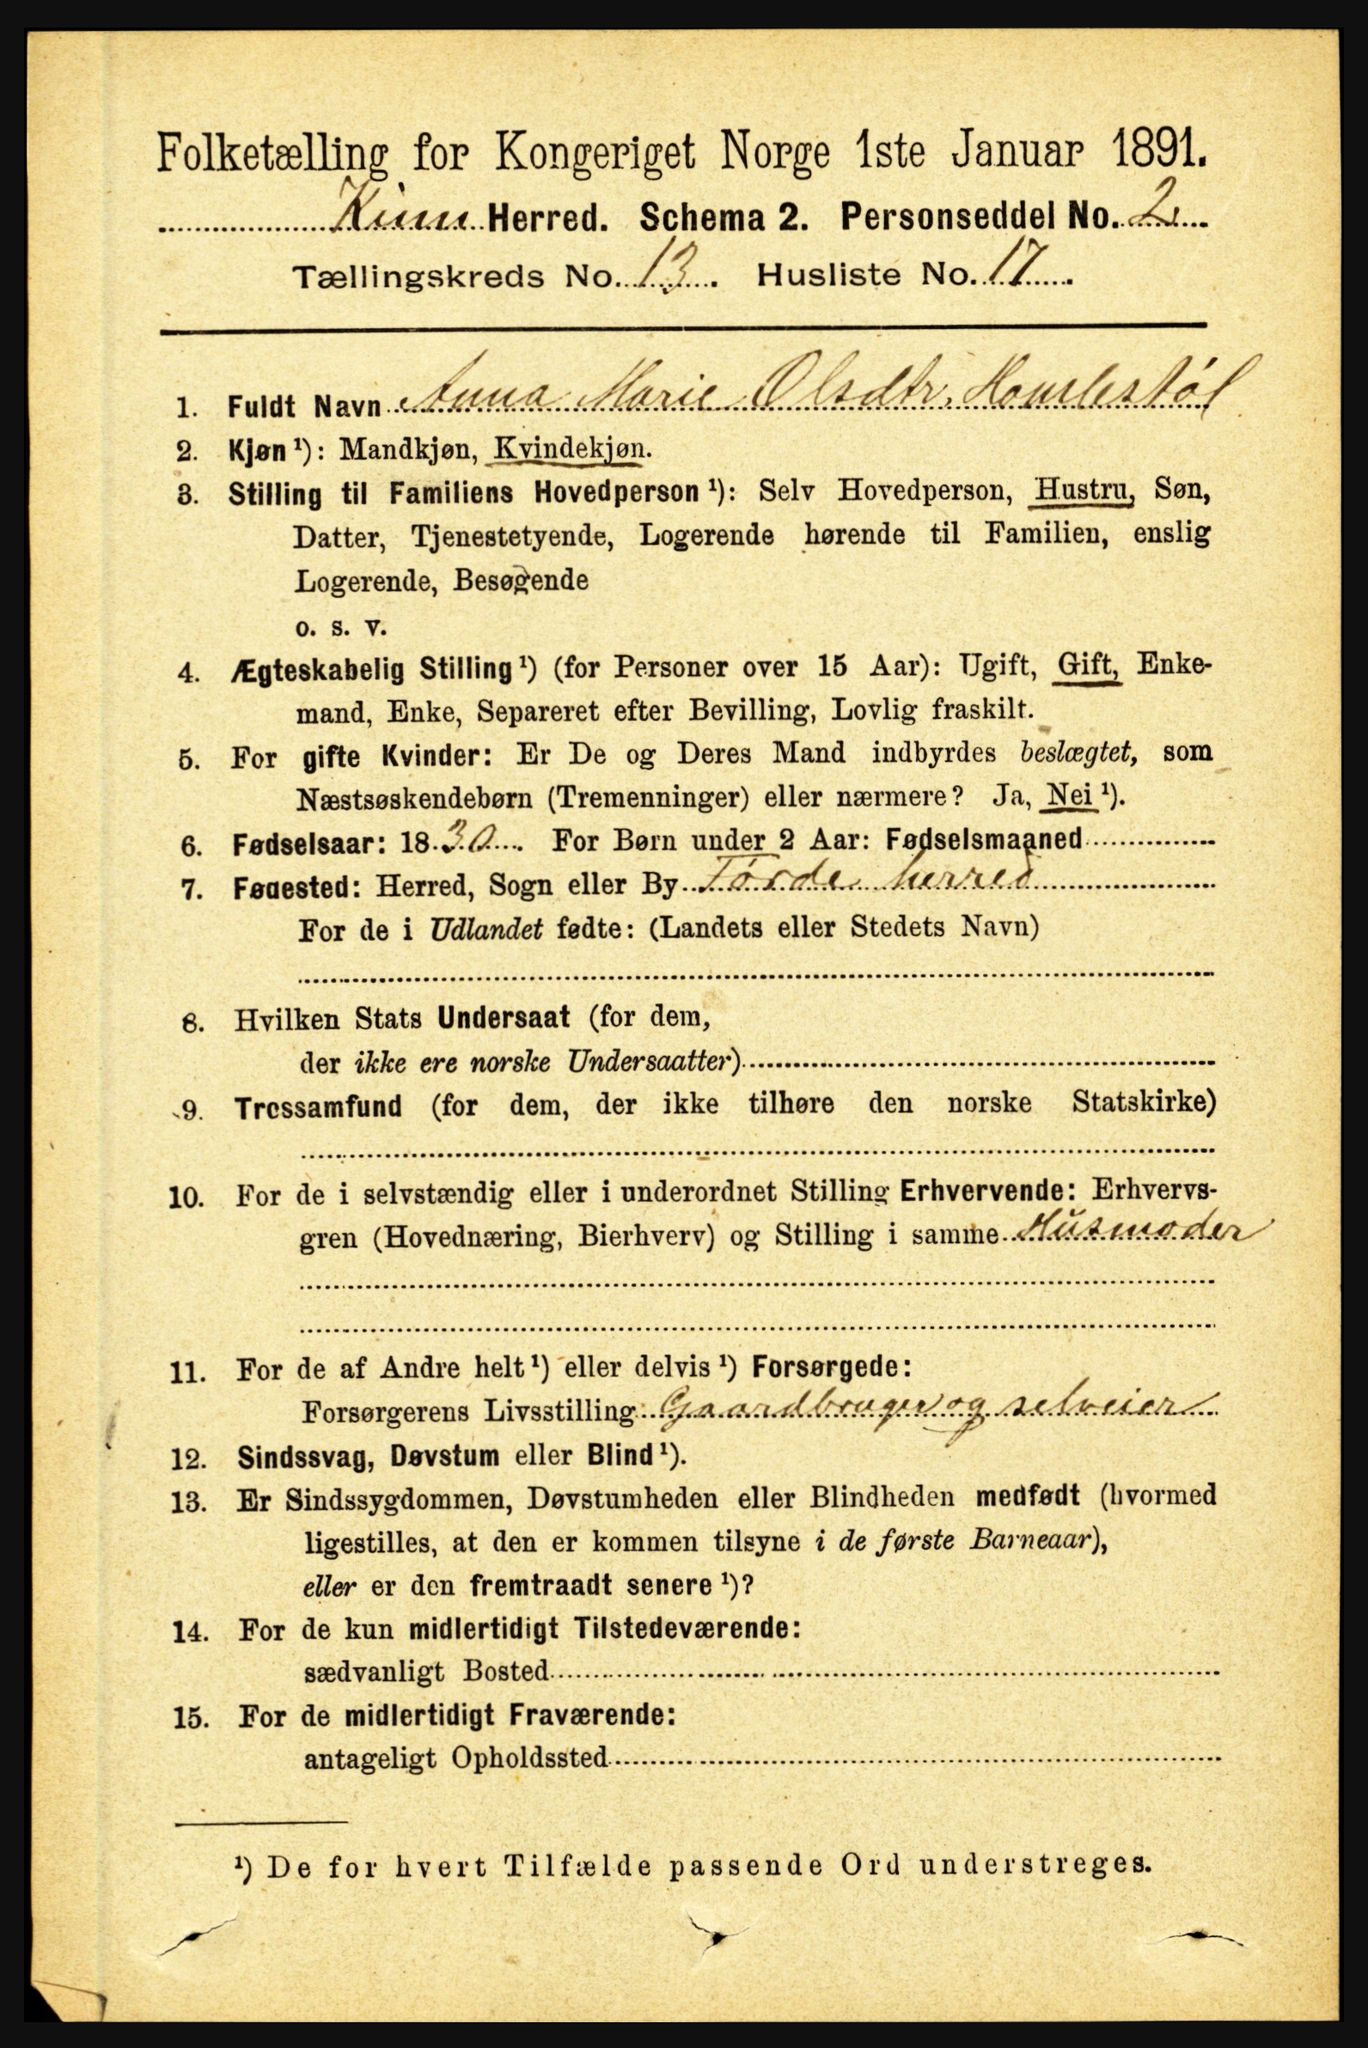 Folketælling for Kongeriget Norge 1ste Januar 1891.
Kinn Herred. Schema 2. Personseddel No. 2
Tællingskreds No. 13. Husliste No. 17
1. Fuldt Navn Anna Marie Olsdtr. Hovlestøl
2. Kjøn ¹): Mandkjøn, Kvindekjøn.
3. Stilling til Familiens Hovedperson ¹): Selv Hovedperson, Hustru, Søn,
Datter, Tjenestetyende, Logerende hørende til Familien, enslig
Logerende, Besøgende
o. s. v.
4. Ægteskabelig Stilling ¹) (for Personer over 15 Aar): Ugift, Gift, Enke-
mand, Enke, Separeret efter Bevilling, Lovlig fraskilt.
5. For gifte Kvinder: Er De og Deres Mand indbyrdes beslægtet, som
Næstsøskendebørn (Tremenninger) eller nærmere? Ja, Nei ¹).
6. Fødselsaar: 1830. For Børn under 2 Aar: Fødselsmaaned
7. Fødested: Herred, Sogn eller By Førde herred
For de i Udlandet fødte: (Landets eller Stedets Navn)
8. Hvilken Stats Undersaat (for dem,
der ikke ere norske Undersaatter)
9. Trossamfund (for dem, der ikke tilhøre den norske Statskirke)
10. For de i selvstændig eller i underordnet Stilling Erhvervende: Erhvervs-
gren (Hovednæring, Bierhverv) og Stilling i samme Husmoder
11. For de af Andre helt ¹) eller delvis ¹) Forsørgede:
Forsørgerens Livsstilling Gaardbruger og selveier
12. Sindssvag, Døvstum eller Blind ¹).
13. Er Sindssygdommen, Døvstumheden eller Blindheden medfødt (hvormed
ligestilles, at den er kommen tilsyne i de første Barneaar),
eller er den fremtraadt senere ¹)?
14. For de kun midlertidigt Tilstedeværende:
sædvanligt Bosted
15. For de midlertidigt Fraværende:
antageligt Opholdssted
¹) De for hvert Tilfælde passende Ord understreges.